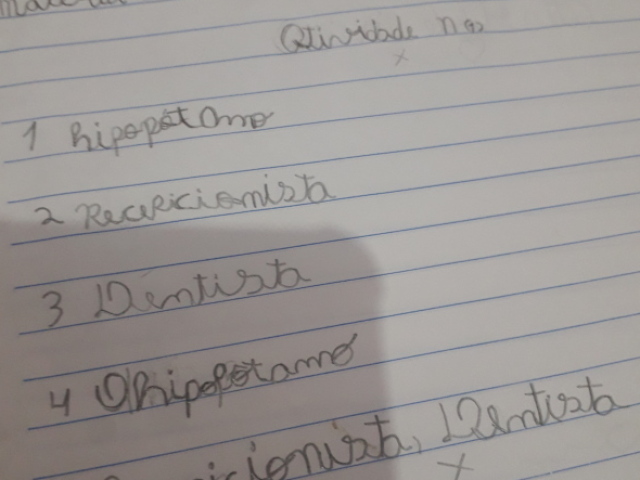 Atividade
x
1 hipopótamo
2 Recepicionista
3 Dentista
4 O hipopótamo
icionista, Dentista
x